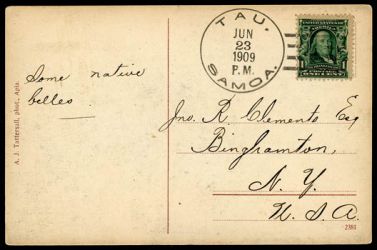 TAU.
JUN
23
1909
P.M.
SAMOA.
Some native
belles.
A. J. Tattersall, phot., Apia.
Jno. R. Clements Esq
Binghamton,
N. Y.
U. S. A.